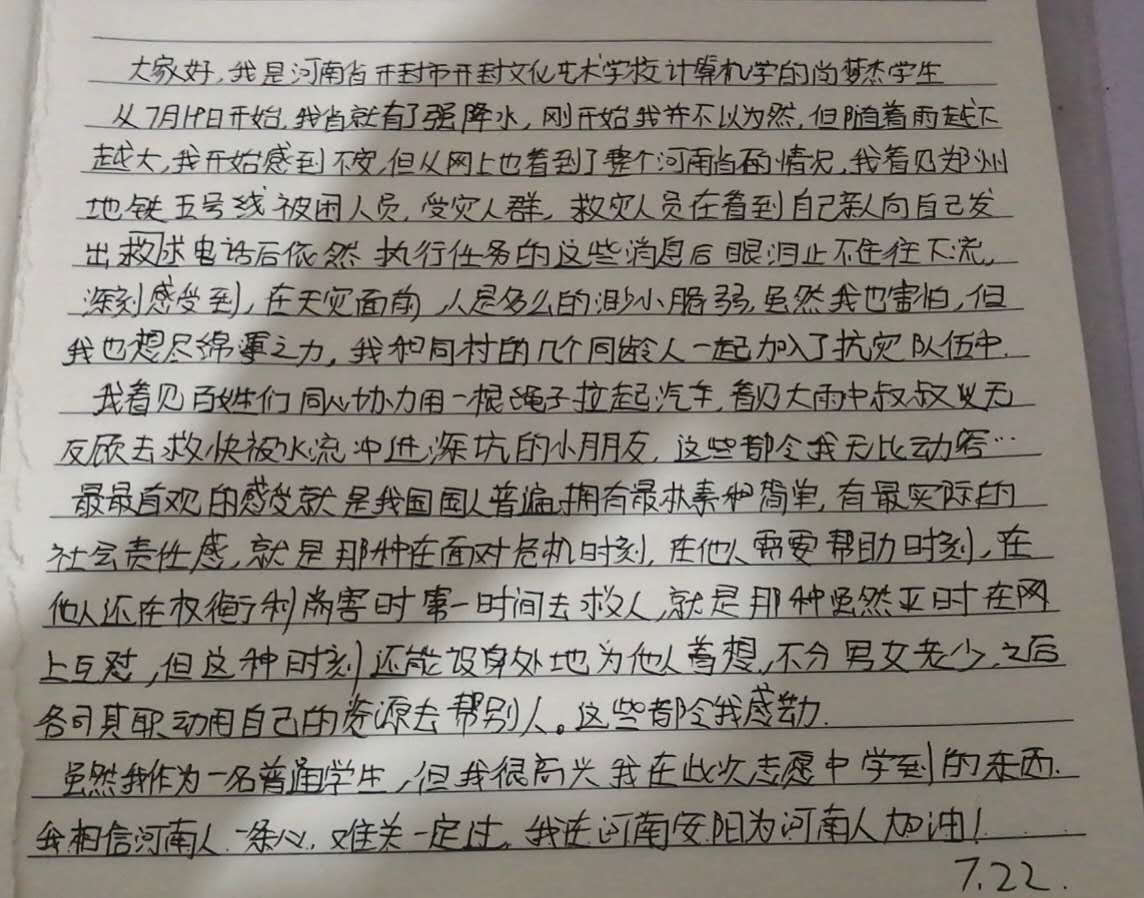 大家好,我是河南省开封市开封文化艺术学校计算机学的尚梦杰学生
从7月19日开始,我省就有了强降水,刚开始我并不以为然,但随着雨越下
越大,我开始感到不安,但从网上也看到了整个河南省的情况,我看见郑州
地铁五号线被困人员,受灾人群,救灾人员在看到自己亲人向自己发
出救求电话后依然执行任务的这些消息后眼泪止不住往下流,
深刻感受到,在天灾面前,人是多么的渺小脆弱,虽然我也害怕,但
我也想尽绵薄之力,我和同村的几个同龄人一起加入了抗灾队伍中.
我看见百姓们同心协力用一根绳子拉起汽车,看见大雨中叔叔义无
反顾去救快被水流冲进深坑的小朋友,这些都令我无比动容…
最最直观的感受就是我国国人普遍拥有最朴素和简单,有最实际的
社会责任感,就是那种在面对危机时刻,在他人需要帮助时刻,在
他人还在权衡利害时第一时间去救人,就是那种虽然平时在网
上互怼,但这种时刻还能设身处地为他人着想,不分男女老少,之后
各司其职动用自己的资源去帮别人。这些都令我感动.
虽然我作为一名普通学生,但我很高兴我在此次志愿中学到的东西.
我相信河南人一条心,难关一定过,我在河南安阳为河南人加油!
7.22.